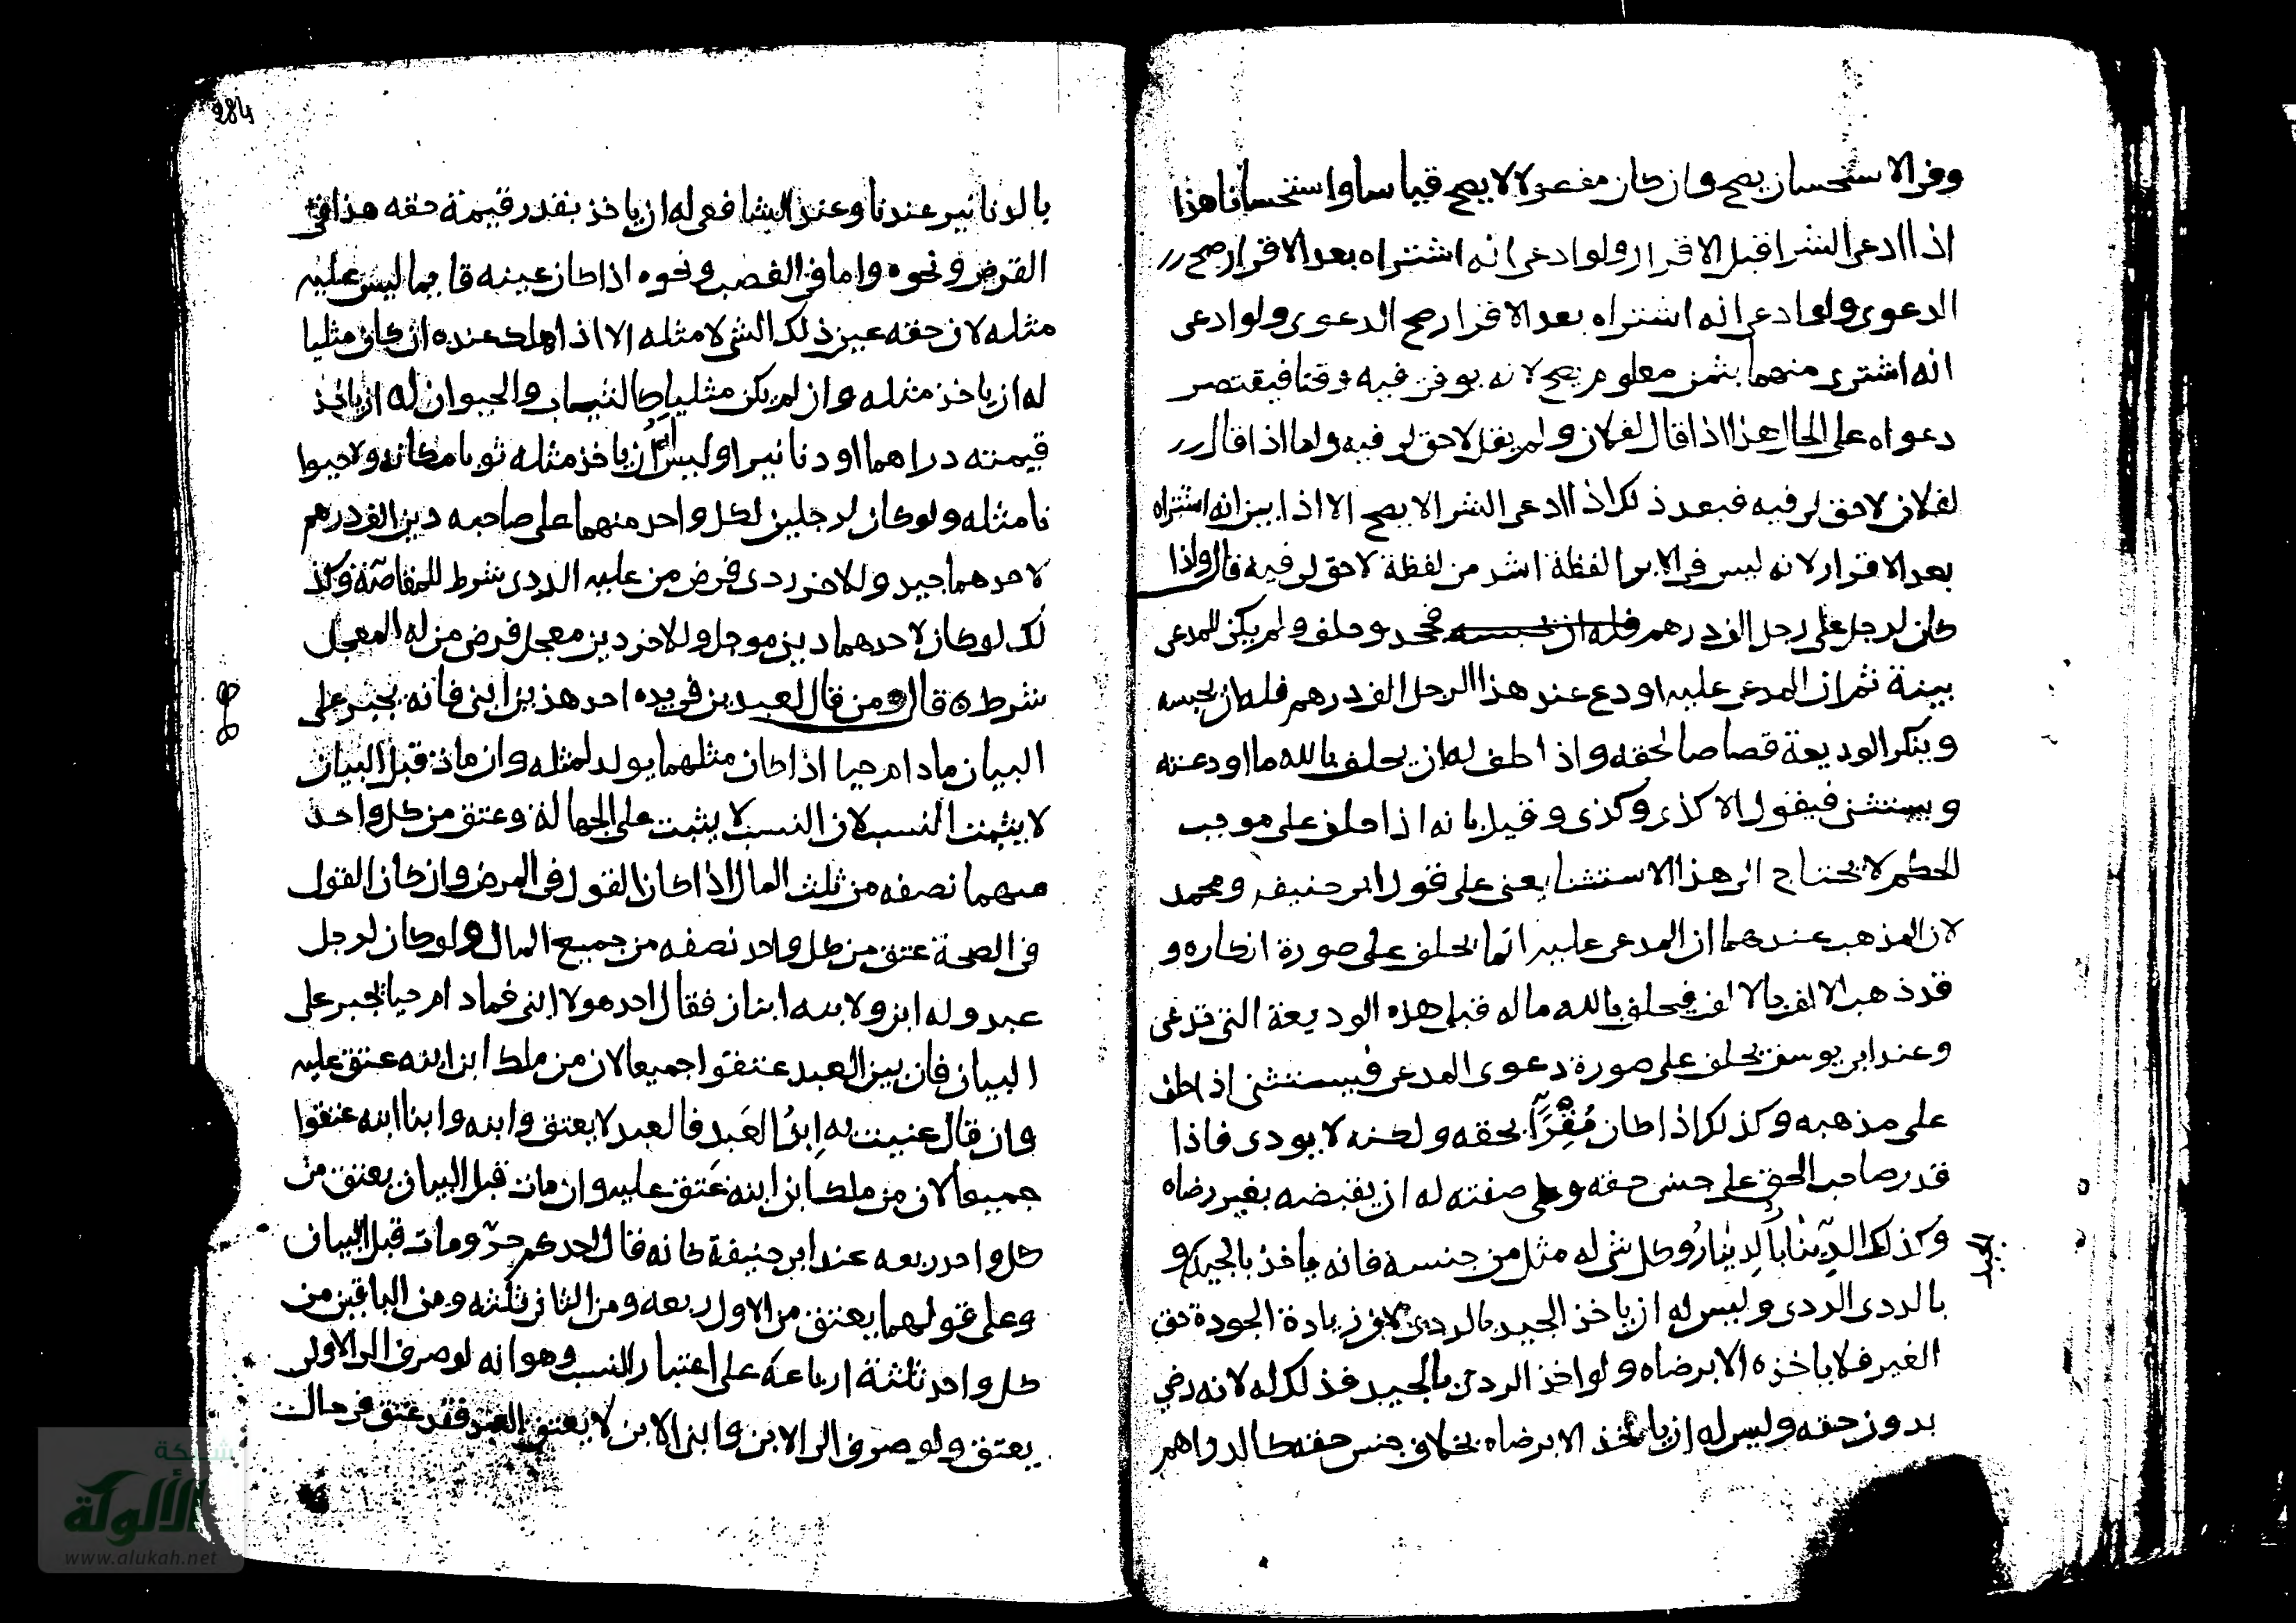 وفي الاستحسان يصح وان كان مفعولا لا يصح قياسا واستحسانا هذا
اذا ادعى الشرا قبل الاقرار ولو ادعى انه اشتراه بعد الاقرار صح
الدعوى ولو ادعى انه اشتراه بعد الاقرار صح الدعوى ولو ادعى
انه اشترى منهما بثمن معلوم يصح لانه يوقن فيه وقتا فيقتصر
دعواه على الحال هذا اذا قال لفلان ولم يقل لا حق لي فيه واما اذا قال
لفلان لا حق لي فيه فبعد ذلك اذا ادعى الشرا لا يصح الا اذا بين انه اشتراه
بعد الاقرار لانه ليس في الابرا لفظة اشد من لفظة لا حق لي فيه قال واذا
كان لرجل على رجل الف درهم فجحد وحلف ولم يكن للمدعي
بينة ثم ان المدعى عليه اودع عند هذا الرجل الف درهم فله ان يحبسه
وينكر الوديعة قصاصا لحقه واذا حلف له ان يحلف بالله ما اودعته
ويستثنى فيقول الا كذى وكذى وقيل بانه اذا حلف على موجب
الحكم لا يحتاج الى هذا الاستثنا يعنى على قول ابي حنيفه ومحمد
لان المذهب عندهما ان المدعى عليه انما يحلف على صورة انكاره و
قد ذهب الالف بالالف فيحلف بالله ماله قبلي هذه الوديعة التي تدعي
وعند ابي يوسف يحلف على صورة دعوى المدعي فيستثنى اذا حلف
على مذهبه وكذلك اذا كان مُقِرًّا بحقه ولكنه لا يودى فاذا
قدر صاحب الحق على جنس حقه وعلى صفته له ان يقبضه بغير رضاه
وكذلك الدينار بالدينار وكل شي له مثل من جنسه فانه ياخذ بالجيد و
الجيد
بالردى الردى وليس له ان ياخذ الجيد بالردى لان زيادة الجودة حق
الغير فلا ياخذه الا برضاه ولو اخذ الردي بالجيد فذلك له لانه رضي
بدون حقه وليس له ان ياخذ الا برضاه بخلاف جنس حقه كالدراهم
284
بالدنانير عندنا وعند الشافعي له ان ياخذ بقدر قيمة حقه هذا في
القرض ونحوه واما في الغصب ونحوه اذا كان عينه قايما ليس عليه
مثله لان حقه عين ذلك الشي لا مثله الا اذا هلك عنده ان كان مثليا
له ان ياخذ مثله وان لم يكن مثليا كالثياب والحيوان له ان ياخذ
قيمته دراهما او دنانيرا وليس له ان ياخذ مثله ثوبا مكانه ولا حيوا
نا مثله ولو كان لرجلين لكل واحد منهما على صاحبه دين الف درهم
لاحدهما جيد وللاخر ردى فرض من عليه الردى شرط للمقاصة وكذ
لك لو كان لاحدهما دين موجل وللاخر دين معجل فرض من له المعجل
شرط قال ومن قال لعبدين في يده احد هذين ابني فانه يجبر على
البيان مادام حيا اذا كان مثلهما يولد لمثله وان مات قبل البيان
لا يثبت النسب لان النسب لا يثبت على الجهالة وعتق من كل واحد
منهما نصفه من ثلث المال اذا كان القول في المرض وان كان القول
في الصحة عتق من كل واحد نصفه من جميع المال ولو كان لرجل
عبد وله ابن ولابنه ابنان فقال احد هولا ابني فمادام حيا يجبر على
البيان فان بين العبد عتقوا جميعا لان من ملك ابن ابنه عتق عليه
وان قال عنيت به ابن العبد فالعبد لا يعتق وابنه وابنا ابنه عتقوا
جميعا لان من ملك ابن ابنه عتق عليه وان مات قبل البيان يعتق من
كل واحد ربعه عند ابي حنيفة كانه قال احدكم حرّ ومات قبل البيان
وعلى قولهما يعتق من الاول ربعه ومن الثاني ثلثه ومن الباقين من
كل واحد ثلثة ارباعه على اعتبار النسب وهو انه لو صرف الى الاول
يعتق ولو صرف الى الابن وابني الابن لا يعتق العبد فقد عتق في حال
شبكة
الألوكة
www.alukah.net